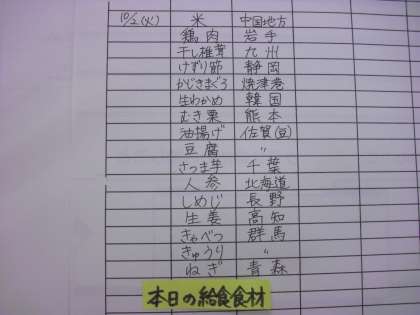 10/2(火) 米 中国地方
鶏肉 岩手
干し椎茸 九州
けずり節 静岡
かじきまぐろ 焼津港
生わかめ 韓国
むき栗 熊本
油揚げ 佐賀(豆)
豆腐 〃
さつま芋 千葉
人参 北海道
しめじ 長野
生姜 高知
きゃべつ 群馬
きゅうり 〃
ねぎ 青森
本日の給食食材